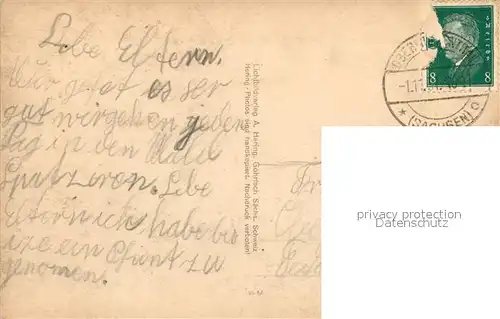 Lebe Eltern.
Mir geht es ser
gut wir gehen jeden
Tag in den Wald
Spatzoren. Lebe
Eltern ich habe bis
ize ein Pfunt zu
genomen.
Lichtbildverlag A. Hering, Gohrisch Sächs. Schweiz
Hering-Photos sind handkopiert. Nachdruck verboten!
8 8
(SACHSEN)
privacy protection
Datenschutz